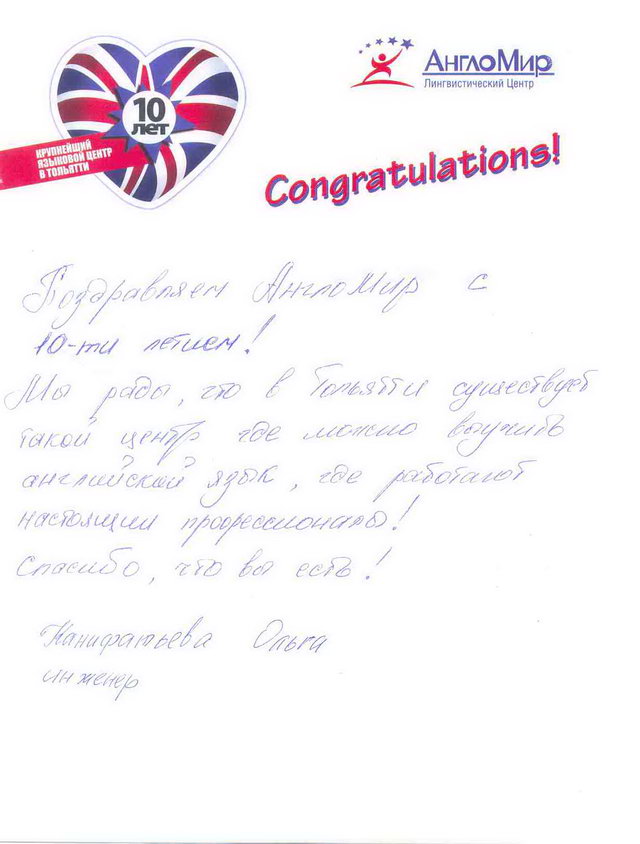 10
ЛЕТ
КРУПНЕЙШИЙ
ЯЗЫКОВОЙ ЦЕНТР
В ТОЛЬЯТТИ
АнглоМир
Лингвистический Центр
Congratulations!
Поздравляем АнглоМир с
10-ти летием!
Мы рады, что в Тольятти существует
такой центр где можно выучить
английский язык, где работают
настоящии профессионалы!
Спасибо, что вы есть!
Ольга
инженер